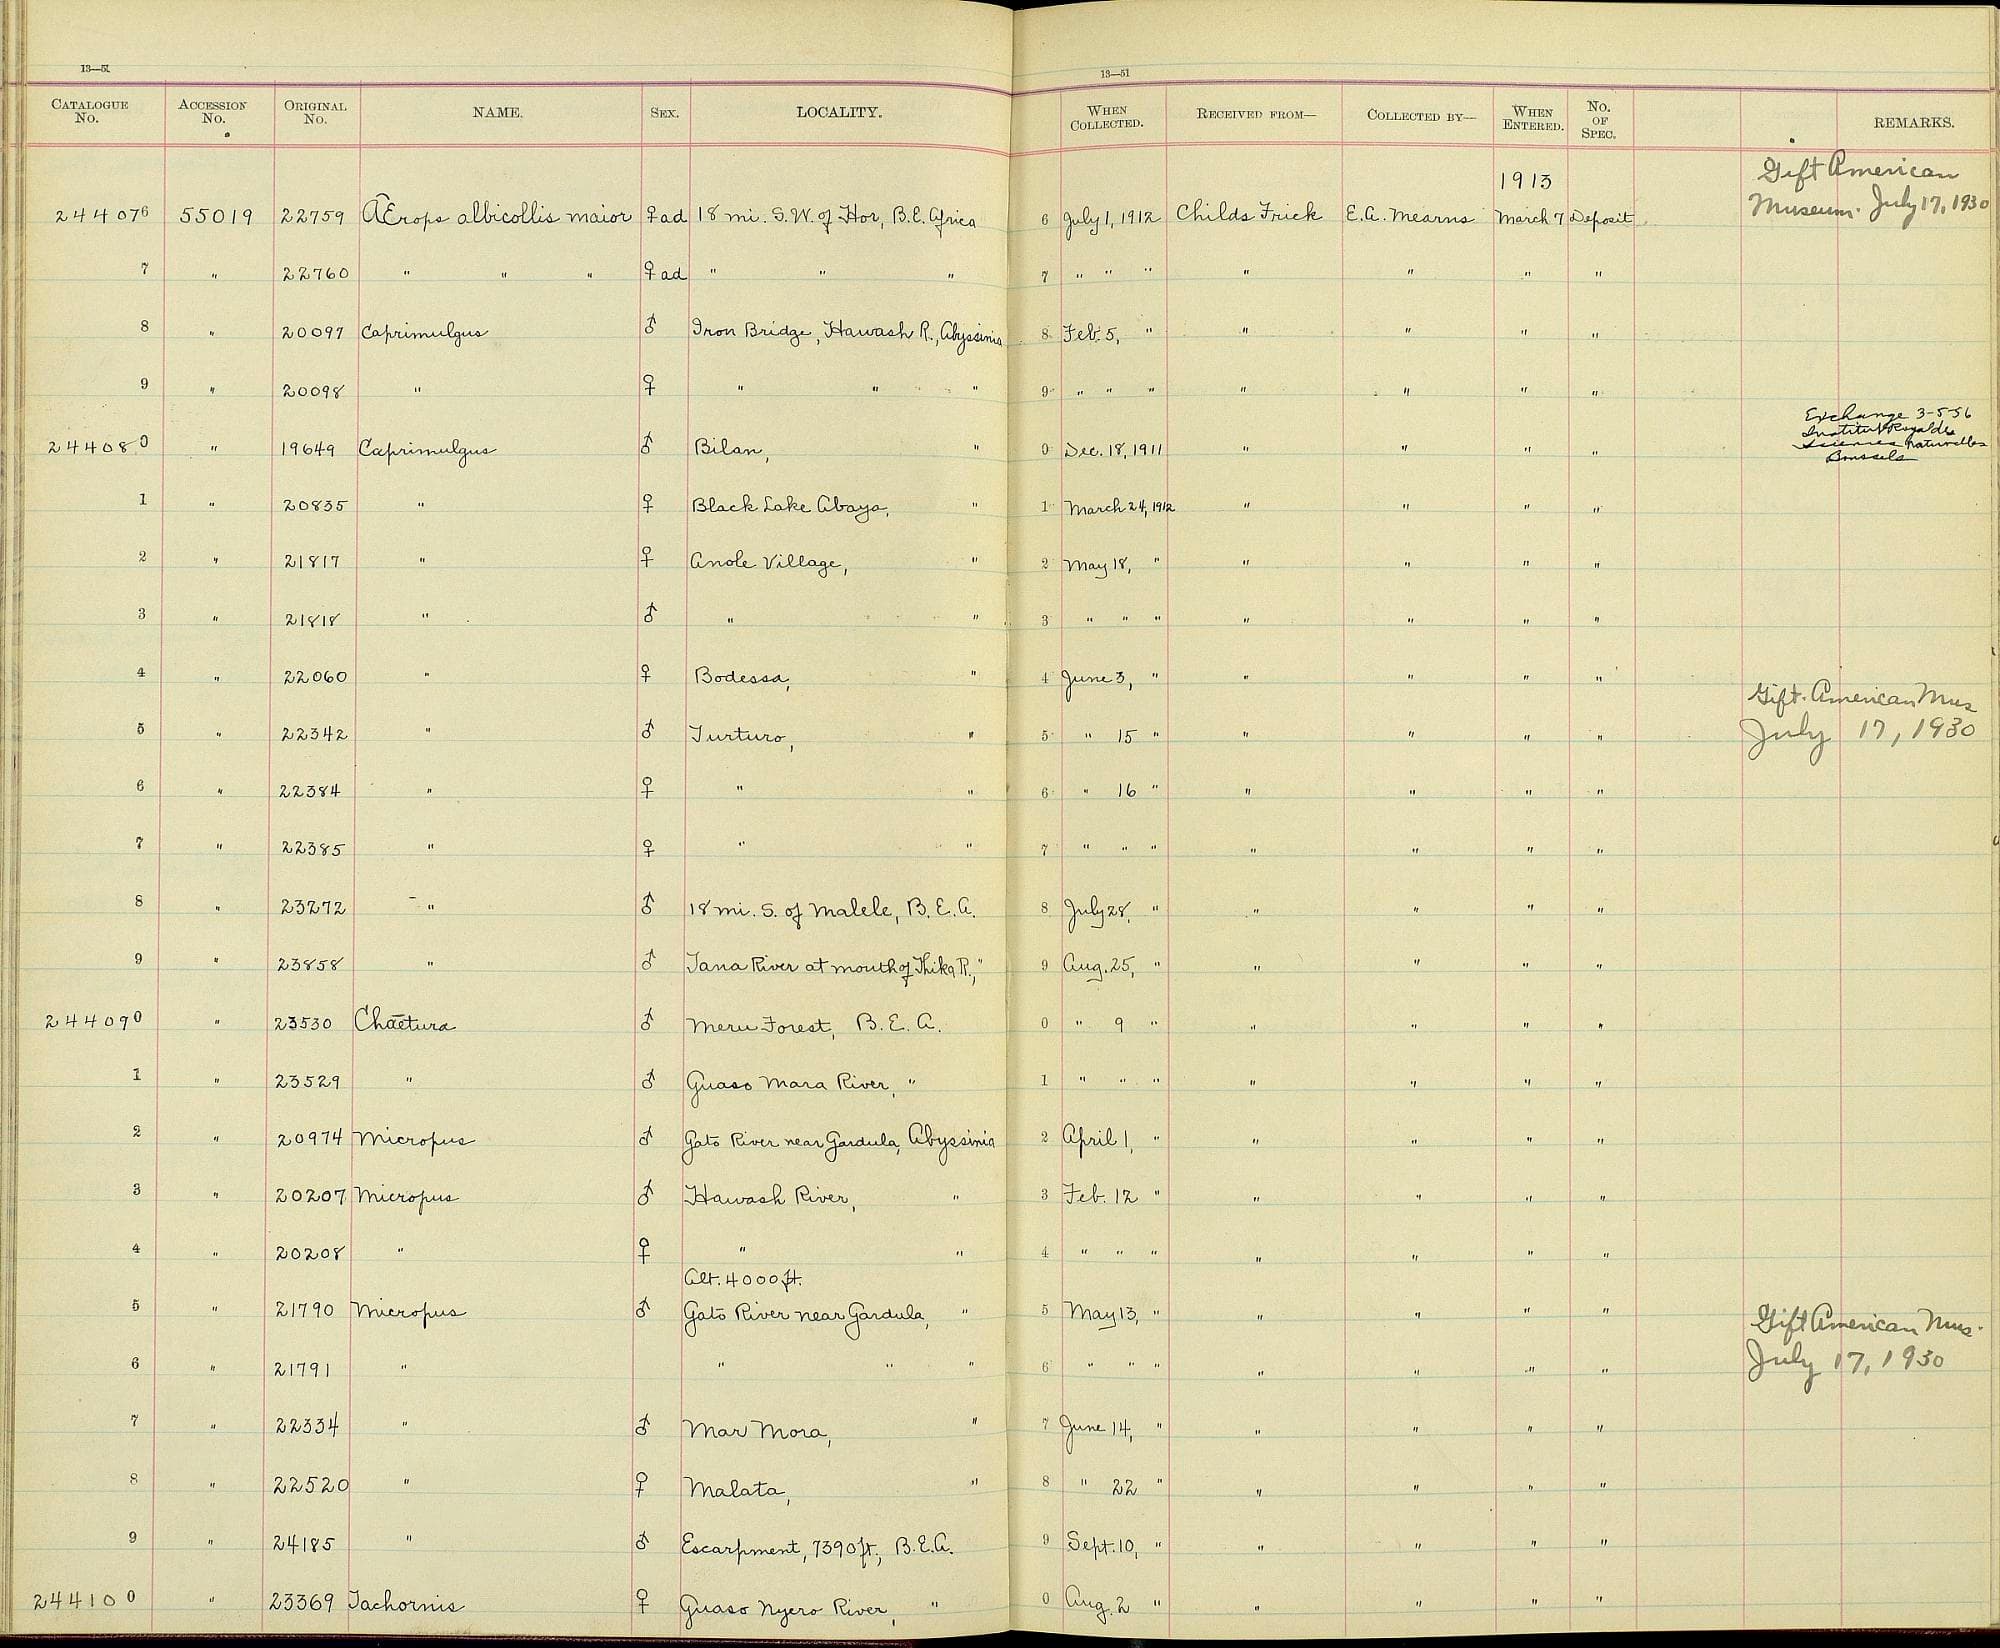 13—51
13—51
CATALOGUE No. ACCESSION No. ORIGINAL No. NAME. SEX. LOCALITY. WHEN COLLECTED. RECEIVED FROM— COLLECTED BY— WHEN ENTERED. No. OF SPEC. REMARKS.
1913 Gift American
244076 55019 22759 Ærops albicollis maior ♀ad 18 mi. S.W. of Hor, B.E. Africa 6 July 1, 1912 Childs Frick E.A. Mearns March 7 Deposit Museum. July 17, 1930
7 " 22760 " " " ♀ad " " " 7 " " " " " " "
8 " 20097 Caprimulgus ♂ Iron Bridge, Hawash R., Abyssinia 8 Feb. 5, " " " " "
9 " 20098 " ♀ " " " 9 " " " " " " "
Exchange 3-5-56
Institut Royal des
Sciences naturelles
Brussels
244080 " 19649 Caprimulgus ♂ Bilan, " 0 Dec. 18, 1911 " " " "
1 " 20835 " ♀ Black Lake Abaya, " 1 March 24, 1912 " " " "
2 " 21817 " ♀ Anole Village, " 2 May 18, " " " " "
3 " 21818 " ♂ " " 3 " " " " " " "
4 " 22060 " ♀ Bodessa, " 4 June 3, " " " " "
Gift. American Mus
5 " 22342 " ♂ Turturo, " 5 " 15 " " " " " July 17, 1930
6 " 22384 " ♀ " " 6 " 16 " " " " "
7 " 22385 " ♀ " " 7 " " " " " " "
8 " 23272 " ♂ 18 mi. S. of Malele, B.E.A. 8 July 28, " " " " "
9 " 23858 " ♂ Tana River at mouth of Thika R., " 9 Aug. 25, " " " " "
244090 " 23530 Chaetura ♂ Meru Forest, B.E.A. 0 " 9 " " " " "
1 " 23529 " ♂ Guaso Mara River, " 1 " " " " " " "
2 " 20974 Micropus ♂ Gato River near Gardula, Abyssinia 2 April 1, " " " " "
3 " 20207 Micropus ♂ Hawash River, " 3 Feb. 12 " " " " "
4 " 20208 " ♀ " " 4 " " " " " " "
Alt. 4000 ft.
5 " 21790 Micropus ♂ Gato River near Gardula, " 5 May 13, " " " " " Gift American Mus.
6 " 21791 " " " " 6 " " " " " " " July 17, 1930
7 " 22334 " ♂ Mar Mora, " 7 June 14, " " " " "
8 " 22520 " ♀ Malata, " 8 " 22 " " " " "
9 " 24185 " ♂ Escarpment, 7390 ft., B.E.A. 9 Sept. 10, " " " " "
244100 " 23369 Tachornis ♀ Guaso Nyero River, " 0 Aug. 2 " " " " "